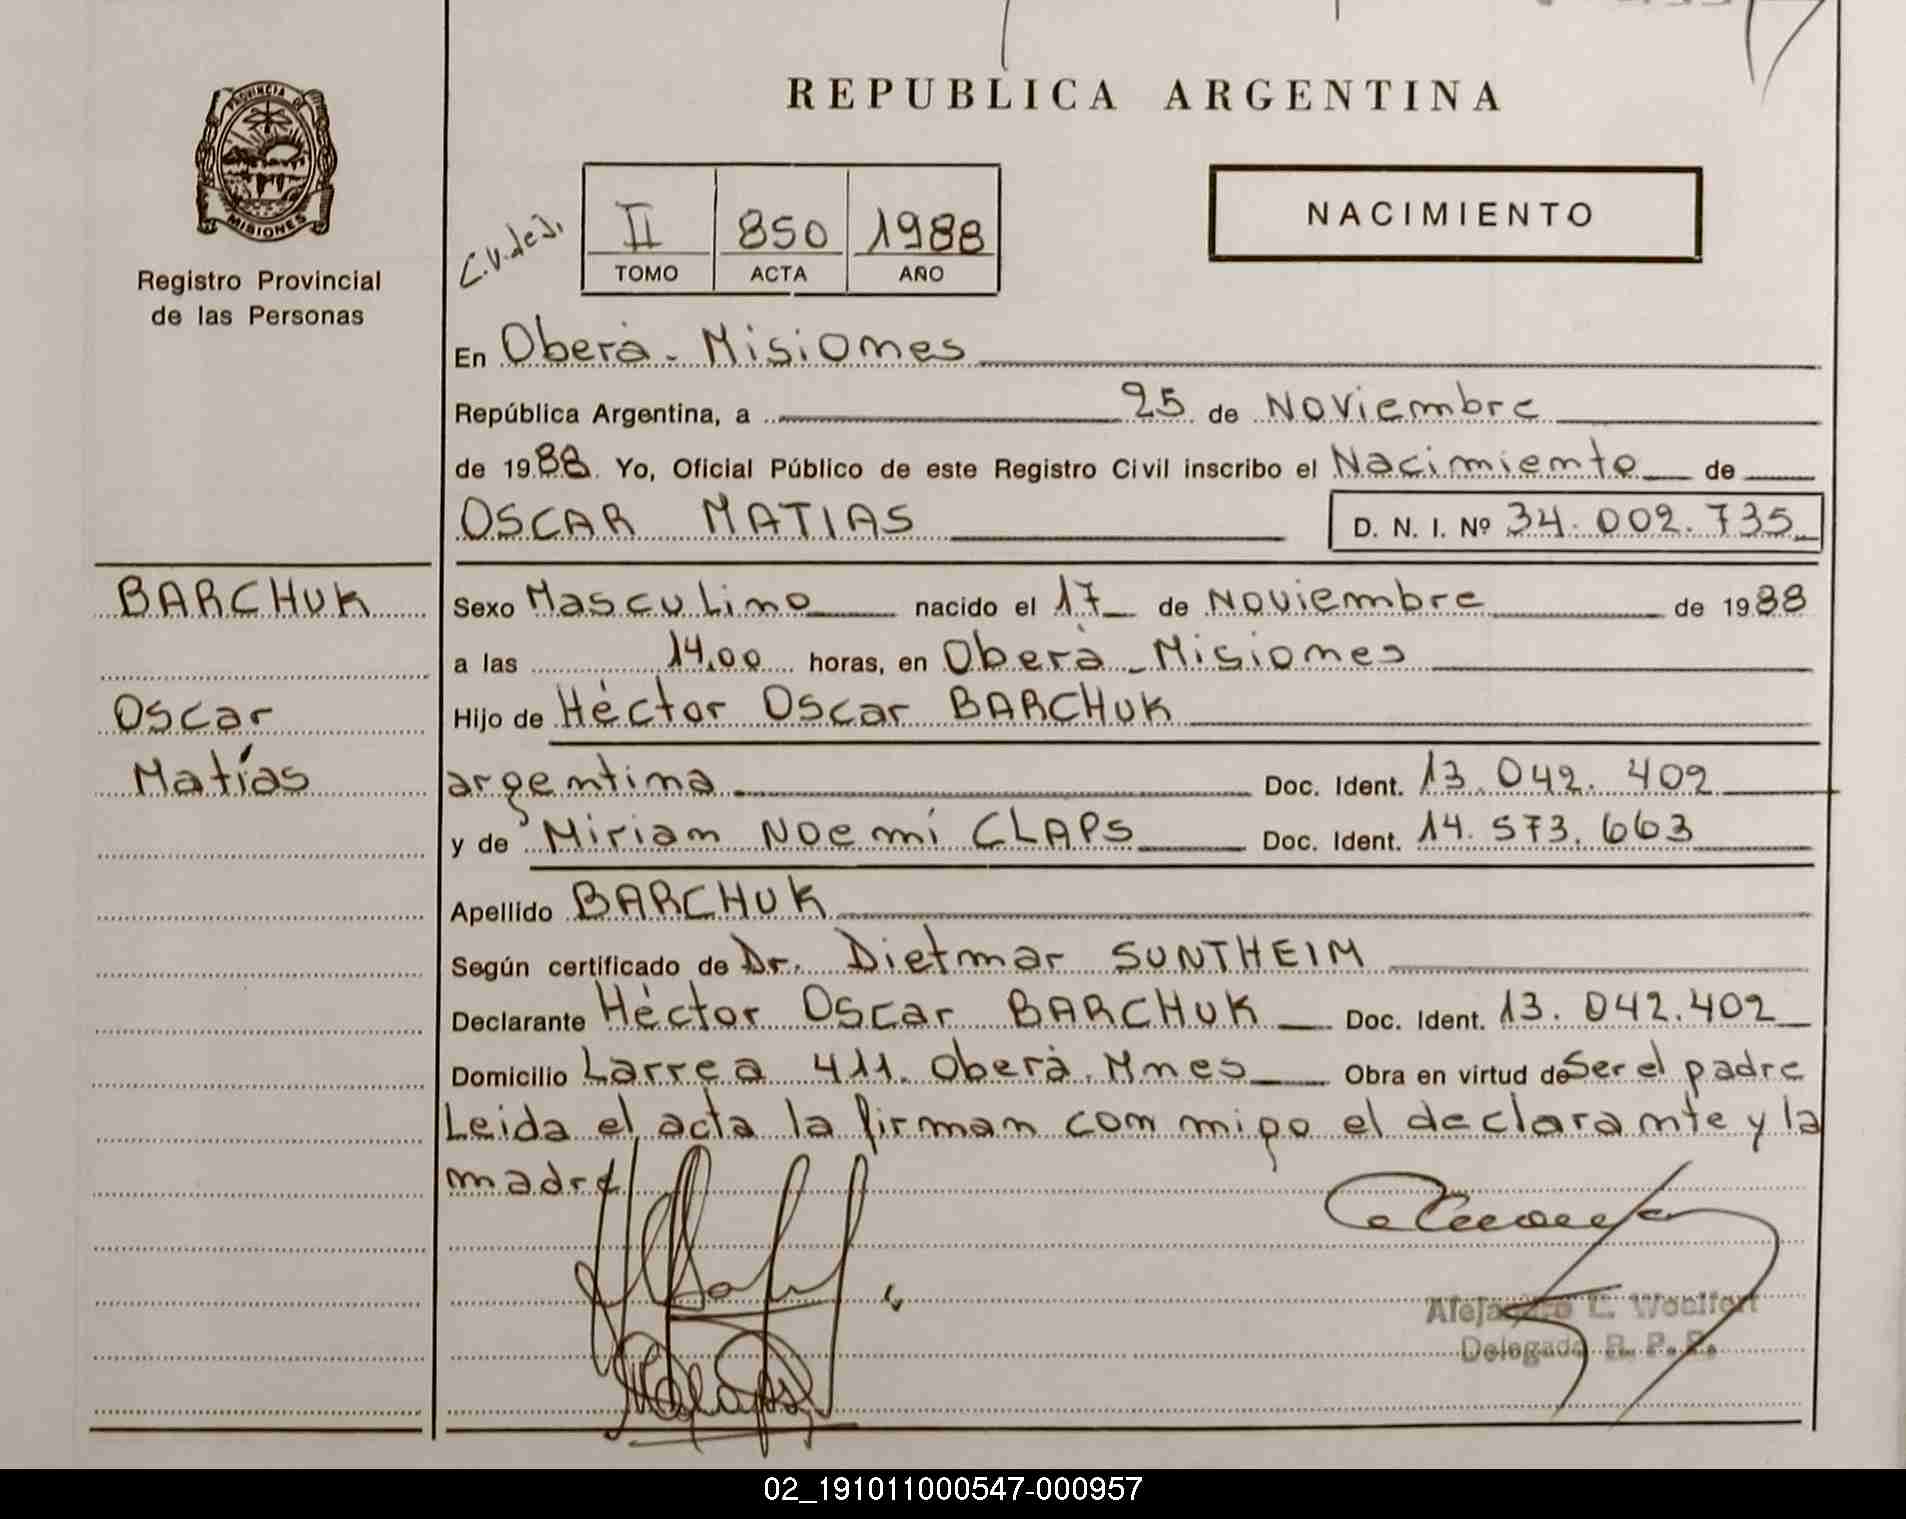 REPUBLICA ARGENTINA
PROVINCIA DE
MISIONES
Registro Provincial
de las Personas
II 850 1988
TOMO ACTA AÑO
NACIMIENTO
En Oberà - Misiones
República Argentina, a 25 de Noviembre
de 1988. Yo, Oficial Público de este Registro Civil inscribo el Nacimiento de
OSCAR MATIAS D. N. I. Nº 34.002.735
BARCHUK
Oscar
Matías
Sexo Masculino nacido el 17 de Noviembre de 1988
a las 14,00 horas, en Oberà - Misiones
Hijo de Héctor Oscar BARCHUK
argentina Doc. Ident. 13.042.402
y de Miriam Noemí CLAPS Doc. Ident. 14.573.663
Apellido BARCHUK
Según certificado de Dr. Dietmar SUNTHEIM
Declarante Héctor Oscar BARCHUK Doc. Ident. 13.042.402
Domicilio Larrea 411. Oberà. Mnes Obra en virtud de Ser el padre
Leida el acta la firman con migo el declarante y la
madre
Delegado R. P. P.
02_191011000547-000957